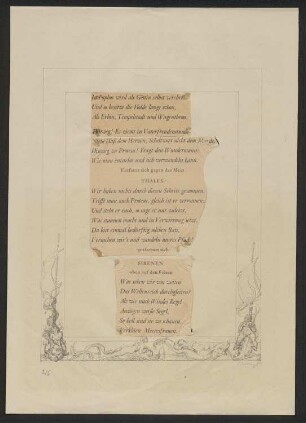 In Paphos wird als Göttin selbst verehrt.
Und so besitzt die Holde lange schon,
Als Erbin, Tempelstadt und Wagenthron.
Hinweg! Es ziemt in Vaterfreudenstunde,
Nicht Haß dem Herzen, Scheltwort nicht dem Munde.
Hinweg zu Proteus! Fragt den Wundermann:
Wie man entstehn und sich verwandlen kann.
Entfernt sich gegen das Meer
THALES.
Wir haben nichts durch diesen Schritt gewonnen,
Trifft man auch Proteus, gleich ist er zerronnen,
Und steht er euch, so sagt er nur zuletzt,
Was staunen macht und in Verwirrung setzt.
Du bist einmal bedürftig solchen Raths,
Versuchen wir's und wandlen unsres Pfads!
entfernen sich.
SIRENEN
oben auf den Felsen
Was sehen wir von weiten
Das Wellenreich durchgleiten?
Als wie nach Windes Regel
Anzögen weiße Segel,
So hell sind sie zu schauen,
Verklärte Meeresfrauen.